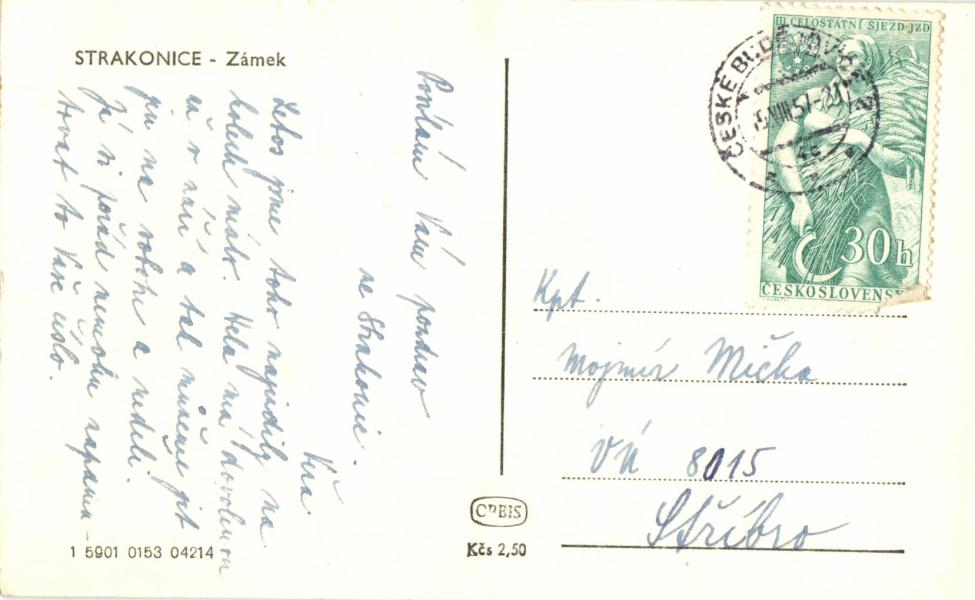 STRAKONICE - Zámek
Posílám Vám pozdrav
ze Strakonic.
Věra.
Letos jsme toho najezdily na
kolech málo. Hela má dovolenou
až v září a tak můžeme jet
jen na sobotu a neděli.
Já si pořád nemohu zapama-
tovat to Vaše číslo.
1 5901 0153 04214
ORBIS
Kčs 2,50
III CELOSTATNÍ SJEZD JZD
30h
ČESKOSLOVENSKO
ČESKÉ BUDĚJOVICE 2
VIII.57-21
4c
Kpt.
Mojmír Mička
VÚ 8015
Stříbro